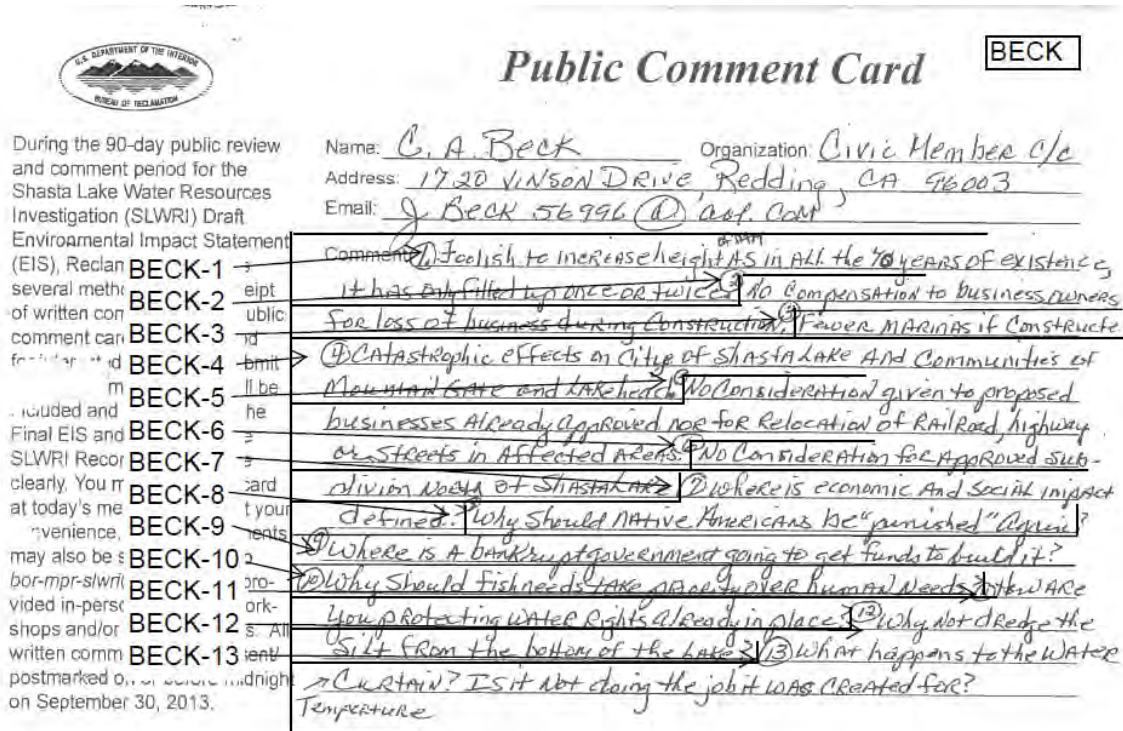 U.S. DEPARTMENT OF THE INTERIOR
BUREAU OF RECLAMATION
Public Comment Card
BECK
During the 90-day public review
and comment period for the
Shasta Lake Water Resources
Investigation (SLWRI) Draft
Environmental Impact Statement
(EIS), Reclan
several meth eipt
of written con ublic
comment car d
d bmit
m ll be
included and he
Final EIS and
SLWRI Recor
clearly. You m card
at today's me t your
venience, ents
may also be s
bor-mpr-slwri pro-
vided in-perso ork-
shops and/or s. All
written comm ent/
postmarked on or before midnight
on September 30, 2013.
Name: C. A. Beck Organization: Civic Member c/c
Address: 1720 VINSON DRIVE, Redding, CA 96003
Email: J BECK 56996 @ aol. COM
BECK-1
BECK-2
BECK-3
BECK-4
BECK-5
BECK-6
BECK-7
BECK-8
BECK-9
BECK-10
BECK-11
BECK-12
BECK-13
of DAM
Comment: 1) Foolish to increase height AS in ALL the 70 years OF existence,
it has only filled up once OR twice. 2 No Compensation to business owners
for loss of business during Construction. 3 Fewer MARINAS if Constructe
4 CATAStrophic effects on City of SHASTA LAKE And Communities of
Mountain Gate and LAKehead. 5 No Consideration given to proposed
businesses Already approved nor for Relocation of RAilRoad, highway
or Streets in Affected AReas. 6 No Consideration for Approved Sub-
divion North of SHASTA LAKE 7 where is economic And Social impact
defined? 8 Why Should NAtive Americans be "punished" Again?
9 Where is A bankrupt government going to get funds to build it?
10 Why Should fish needs TAKE priority over human Needs? 11 How ARE
you protecting WATER Rights already in place? 12 Why Not dredge the
Silt from the bottom of the LAKE? 13 What happens to the WATER
CURTAIN? IS it Not doing the job it WAS CREATED for?
Temperature